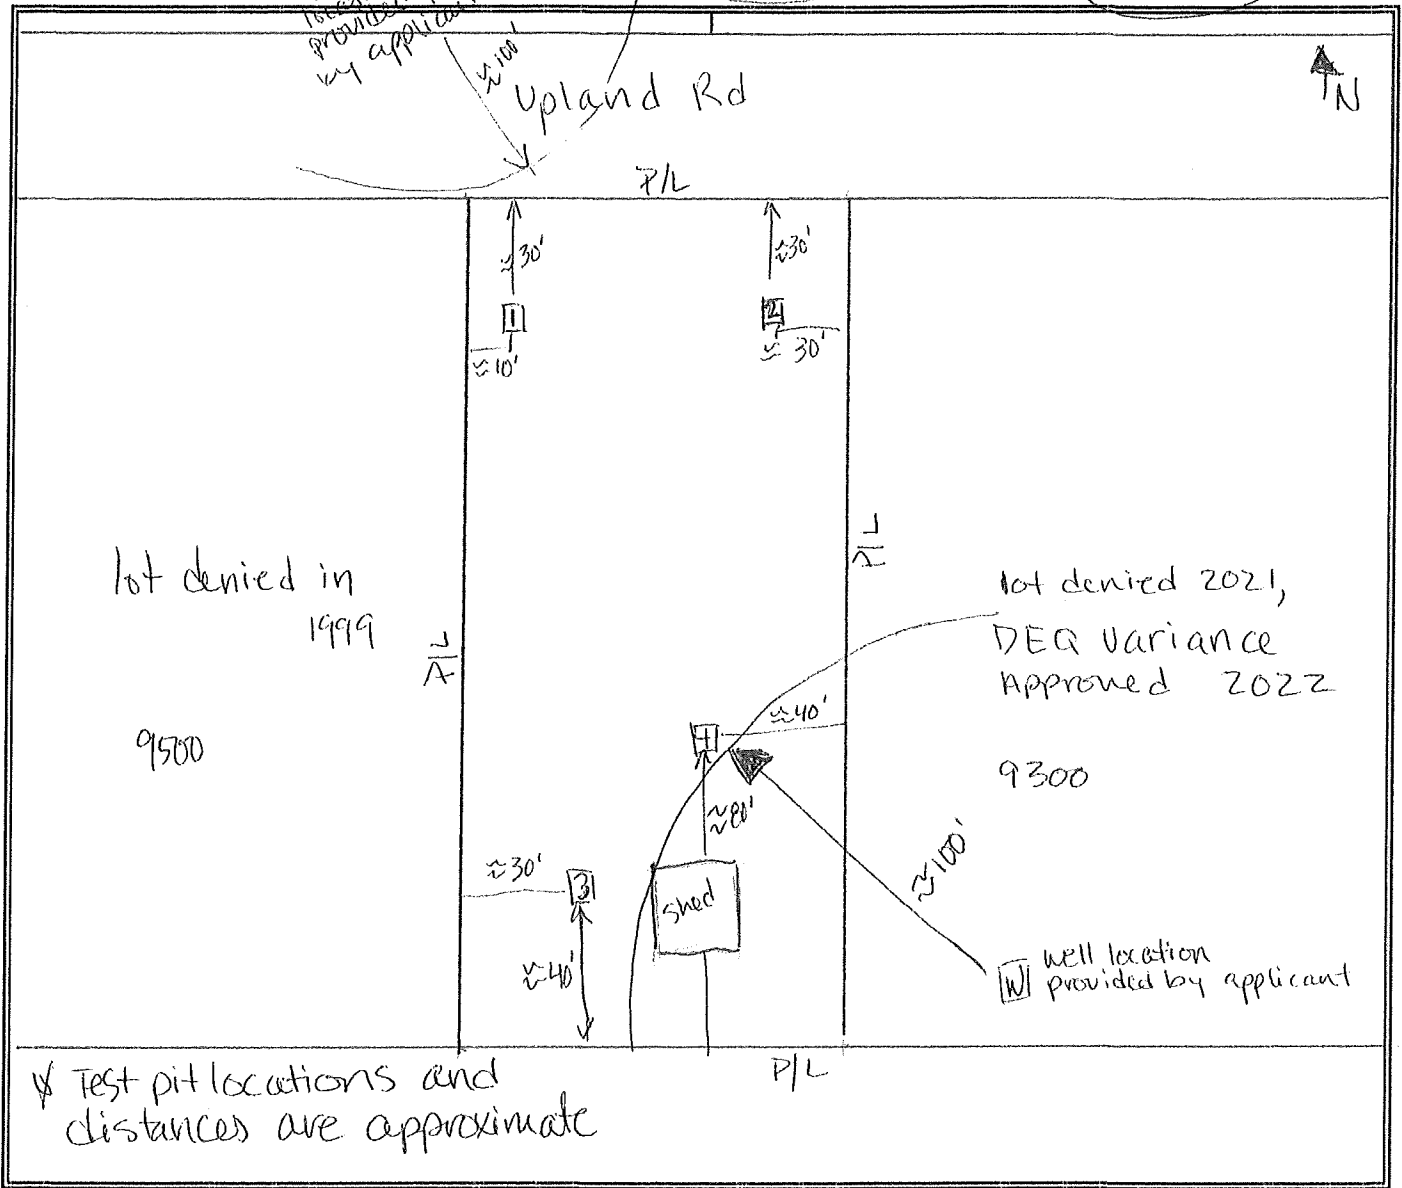 provided
by applicant
≈100'
Upland Rd
N
P/L
≈30'
≈30'
1
2
≈10'
≈ 30'
P/L
lot denied in
1999
P/L
lot denied 2021,
DEQ Variance
Approved 2022
9500
≈40'
4
9300
≈80'
≈30'
3
shed
≈100'
≈40'
W well location
provided by applicant
P/L
* Test pit locations and
distances are approximate